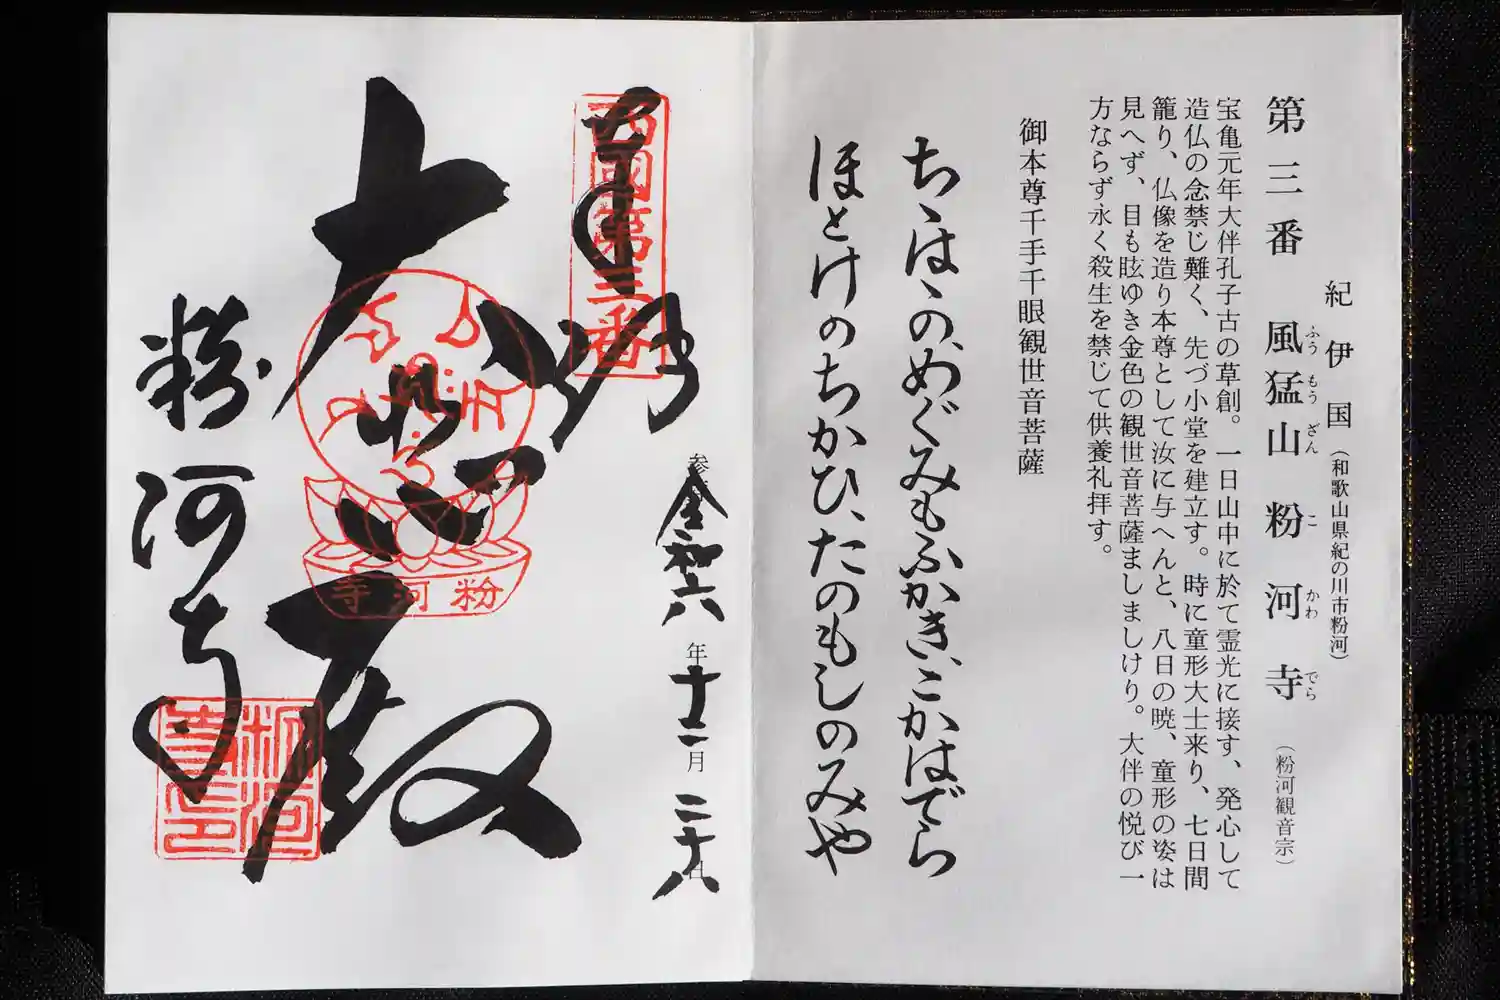 紀伊国(和歌山県紀の川市粉河)
第三番 風猛山 粉河寺(粉河観音宗)
ふう もう ざん こ かわ でら
宝亀元年大伴孔子古の草創。一日山中に於て霊光に接す、発心して
造仏の念禁じ難く、先づ小堂を建立す。時に童形大士来り、七日間
籠り、仏像を造り本尊として汝に与へんと、八日の暁、童形の姿は
見へず、目も眩ゆき金色の観世音菩薩ましましけり。大伴の悦び一
方ならず永く殺生を禁じて供養礼拝す。
御本尊千手千眼観世音菩薩
ちゝはゝの、めぐみもふかき、こかはでら
ほとけのちかひ、たのもしのみや
西國第三番
令和六年十二月二十八日
大悲殿
粉河寺
粉河寺